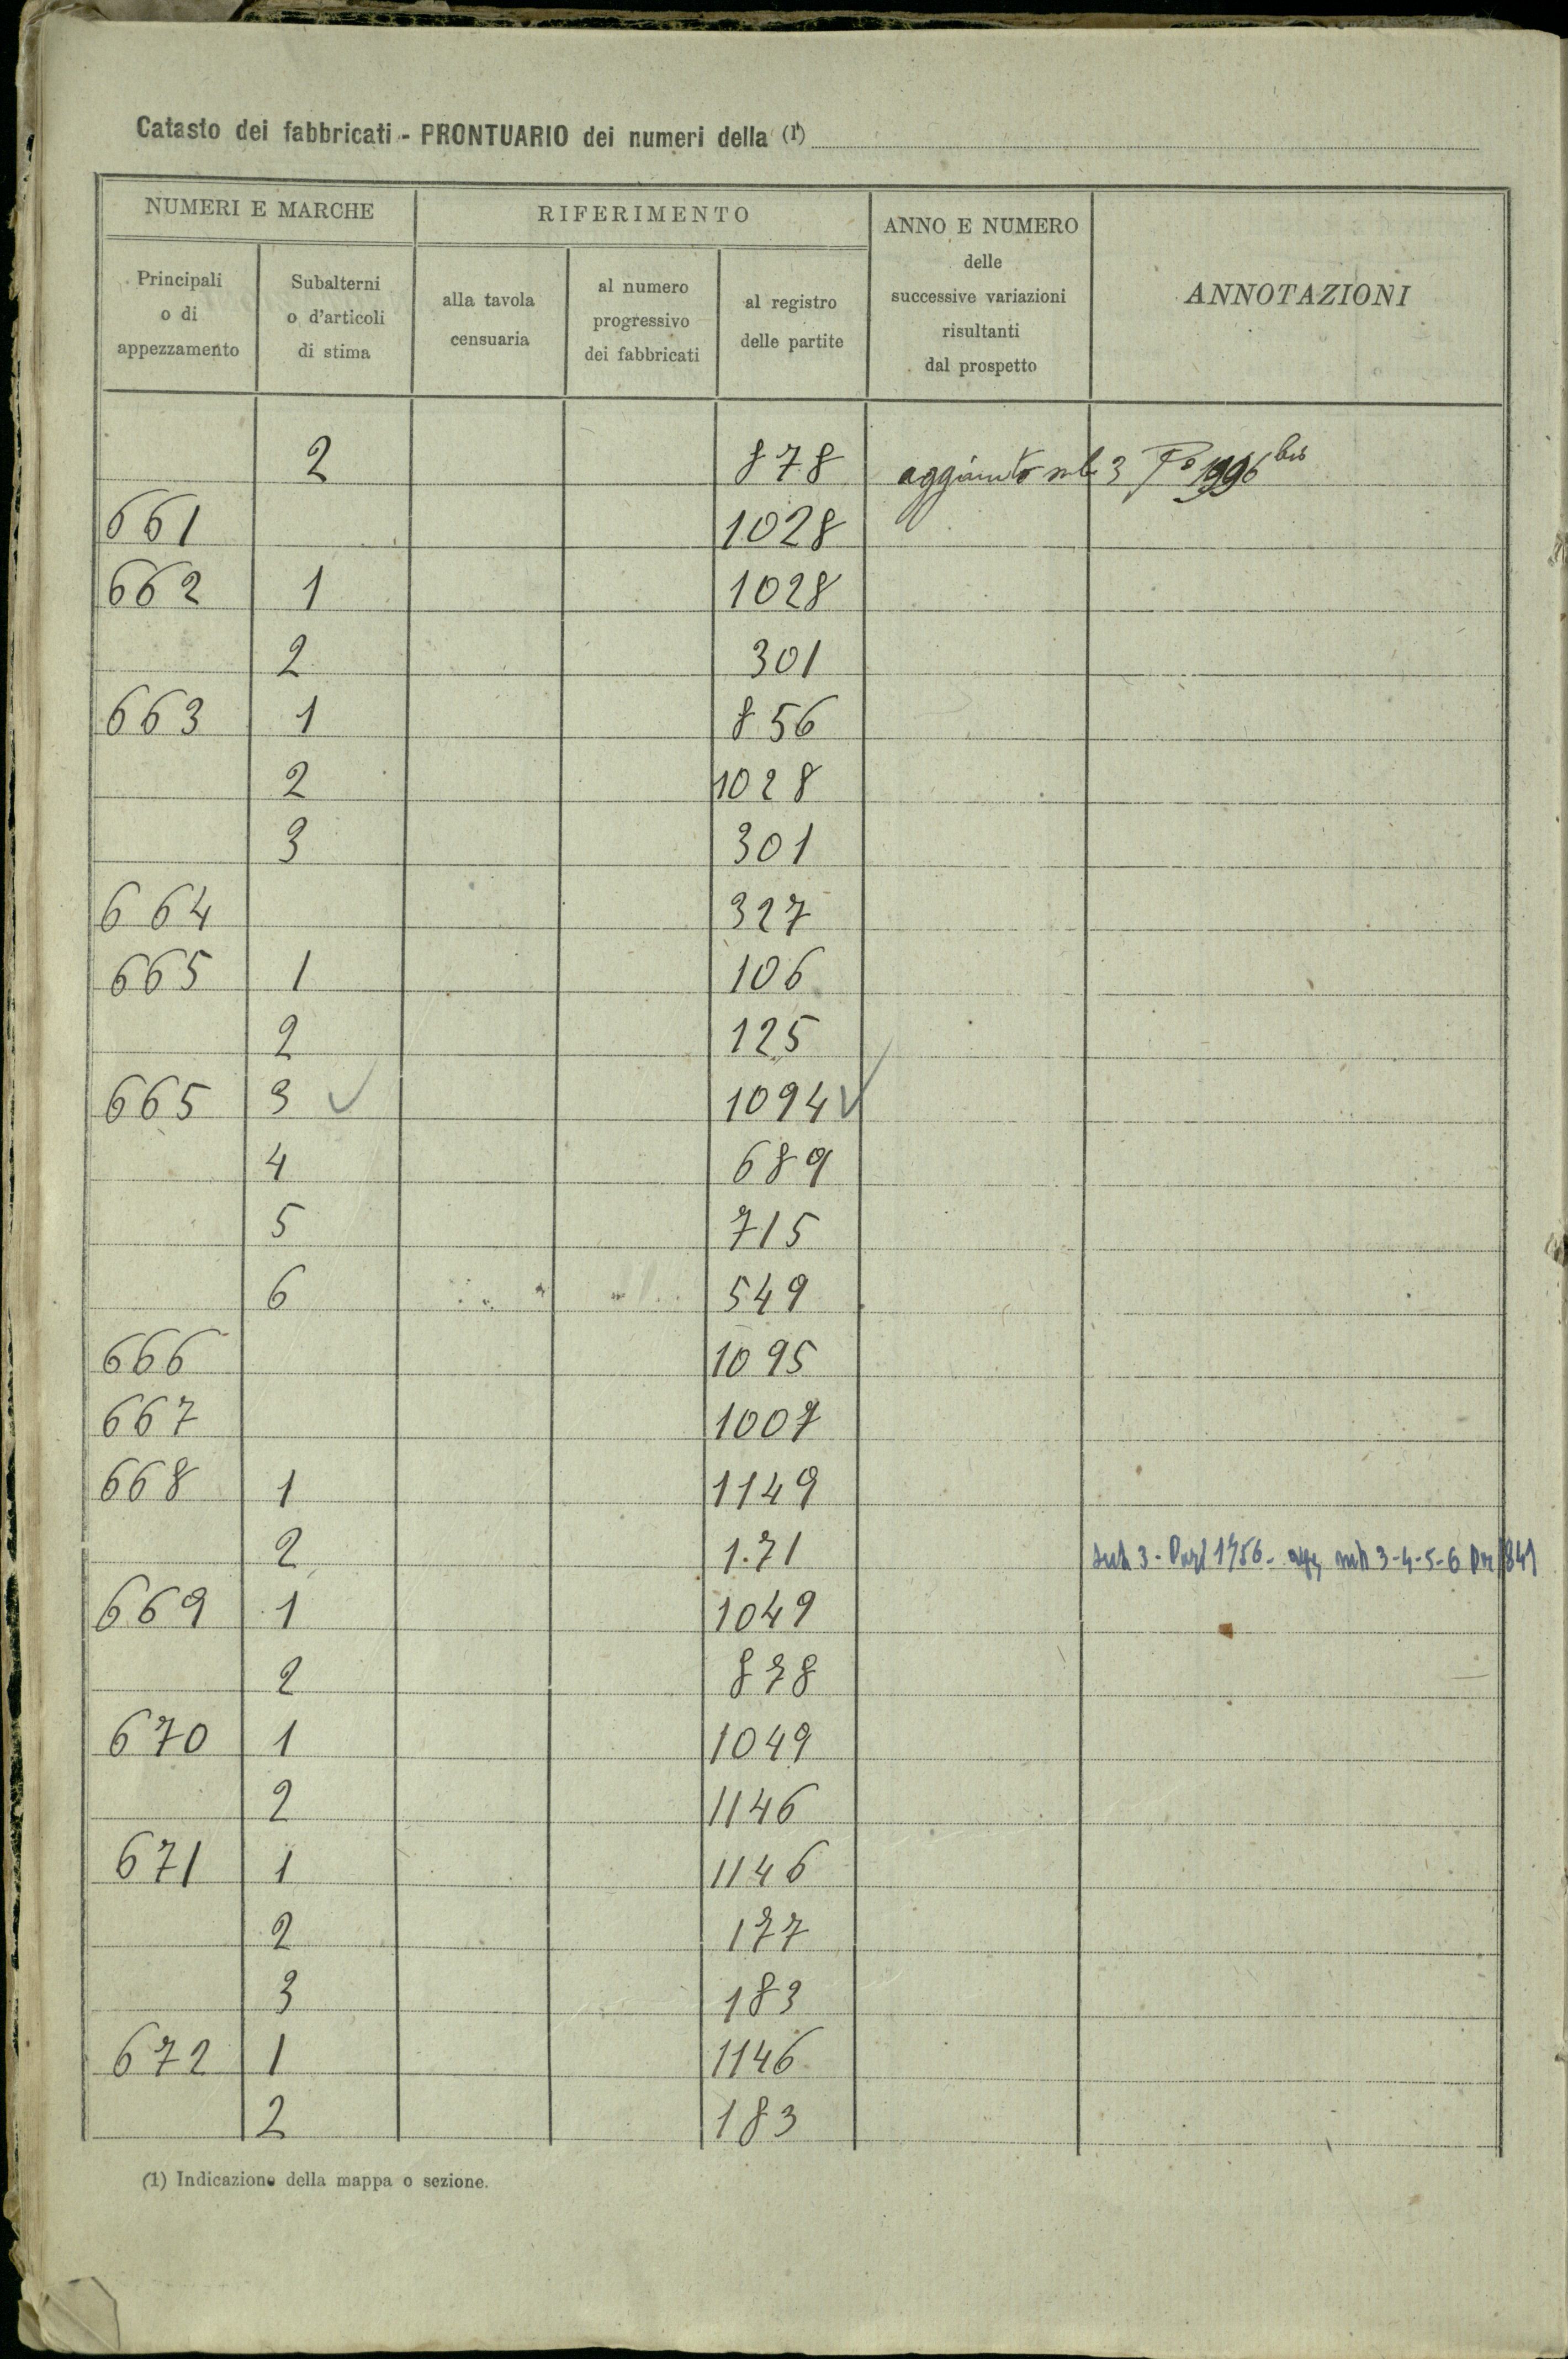 Catasto dei fabbricati - PRONTUARIO dei numeri della (1)
NUMERI E MARCHE
RIFERIMENTO
ANNO E NUMERO
delle
successive variazioni
risultanti
dal prospetto
ANNOTAZIONI
Principali
o di
appezzamento
Subalterni
o d'articoli
di stima
alla tavola
censuaria
al numero
progressivo
dei fabbricati
al registro
delle partite
2 878 aggiunto sub 3
661 1028
662 1 1028
2 301
663 1 856
2 1028
3 301
664 327
665 1 106
2 125
665 3 1094
4 689
5 715
6 549
666 1095
667 1007
668 1 1149
2 1.71 sub 3 - 1756 - sub 3-4-5-6
669 1 1049
2 878
670 1 1049
2 1146
671 1 1146
2 177
3 183
672 1 1146
2 183
(1) Indicazione della mappa o sezione.